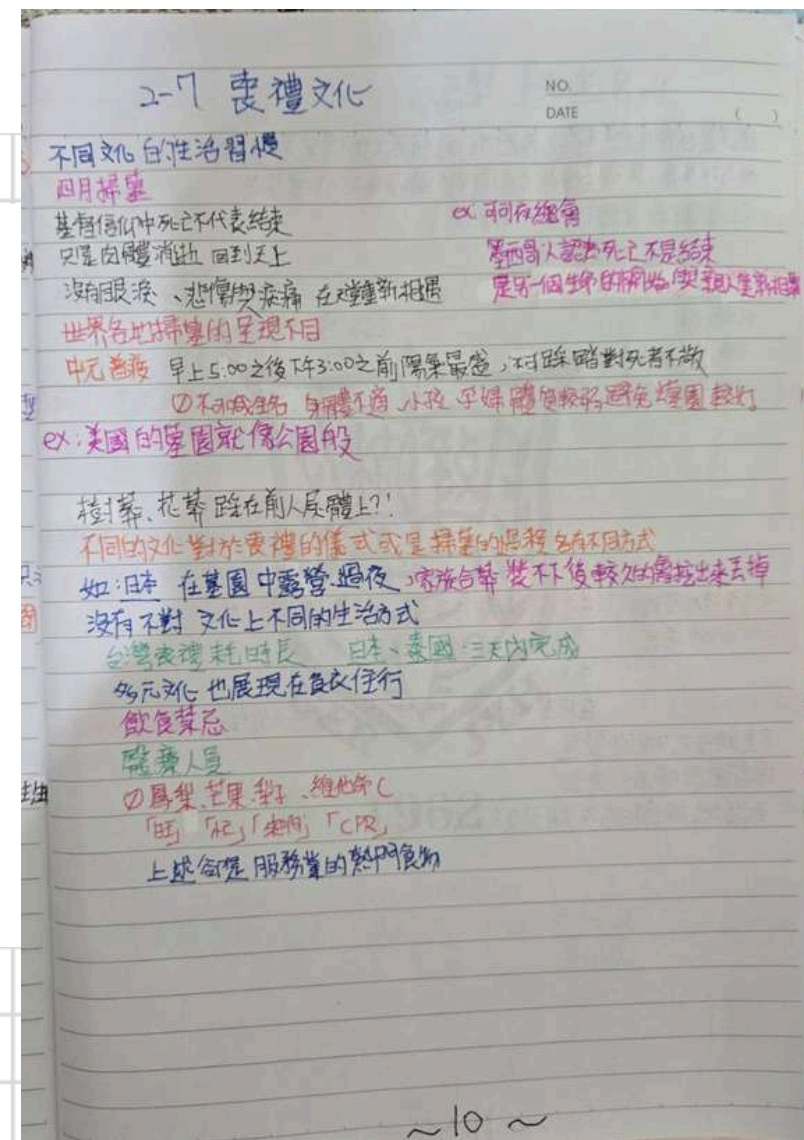 2-7 喪禮文化
NO.
DATE ( )
不同文化的生活習慣
四月掃墓
基督信仰中死亡不代表結束
ex. 可可夜總會
只是肉體消逝 回到天上
墨西哥人認為死亡不是結束
沒有眼淚、悲傷與疾痛 在天堂重新相遇
是另一個生命的開始,與親人重新相聚
世界各地掃墓的呈現不同
中元普渡 早上5:00之後下午3:00之前陽氣最盛,不可踩踏對死者不敬
不可喊全名 身體不適 小孩 孕婦 體質較弱避免墓園較好
ex:美國的墓園就像公園般
樹葬、花葬 踩在前人屍體上?!
不同的文化對於喪禮的儀式或是掃墓的過程 各有不同方式
如:日本 在墓園中露營、過夜,家族合葬 裝不下後較久的會挖出來丟掉
沒有不對 文化上不同的生活方式
台灣喪禮耗時長 日本、泰國:三天內完成
多元文化 也展現在食衣住行
飲食禁忌
醫療人員
鳳梨、芒果、梨子、維他命C
「旺」「忙」「CPR」
上述卻是服務業的熱門食物
~10~